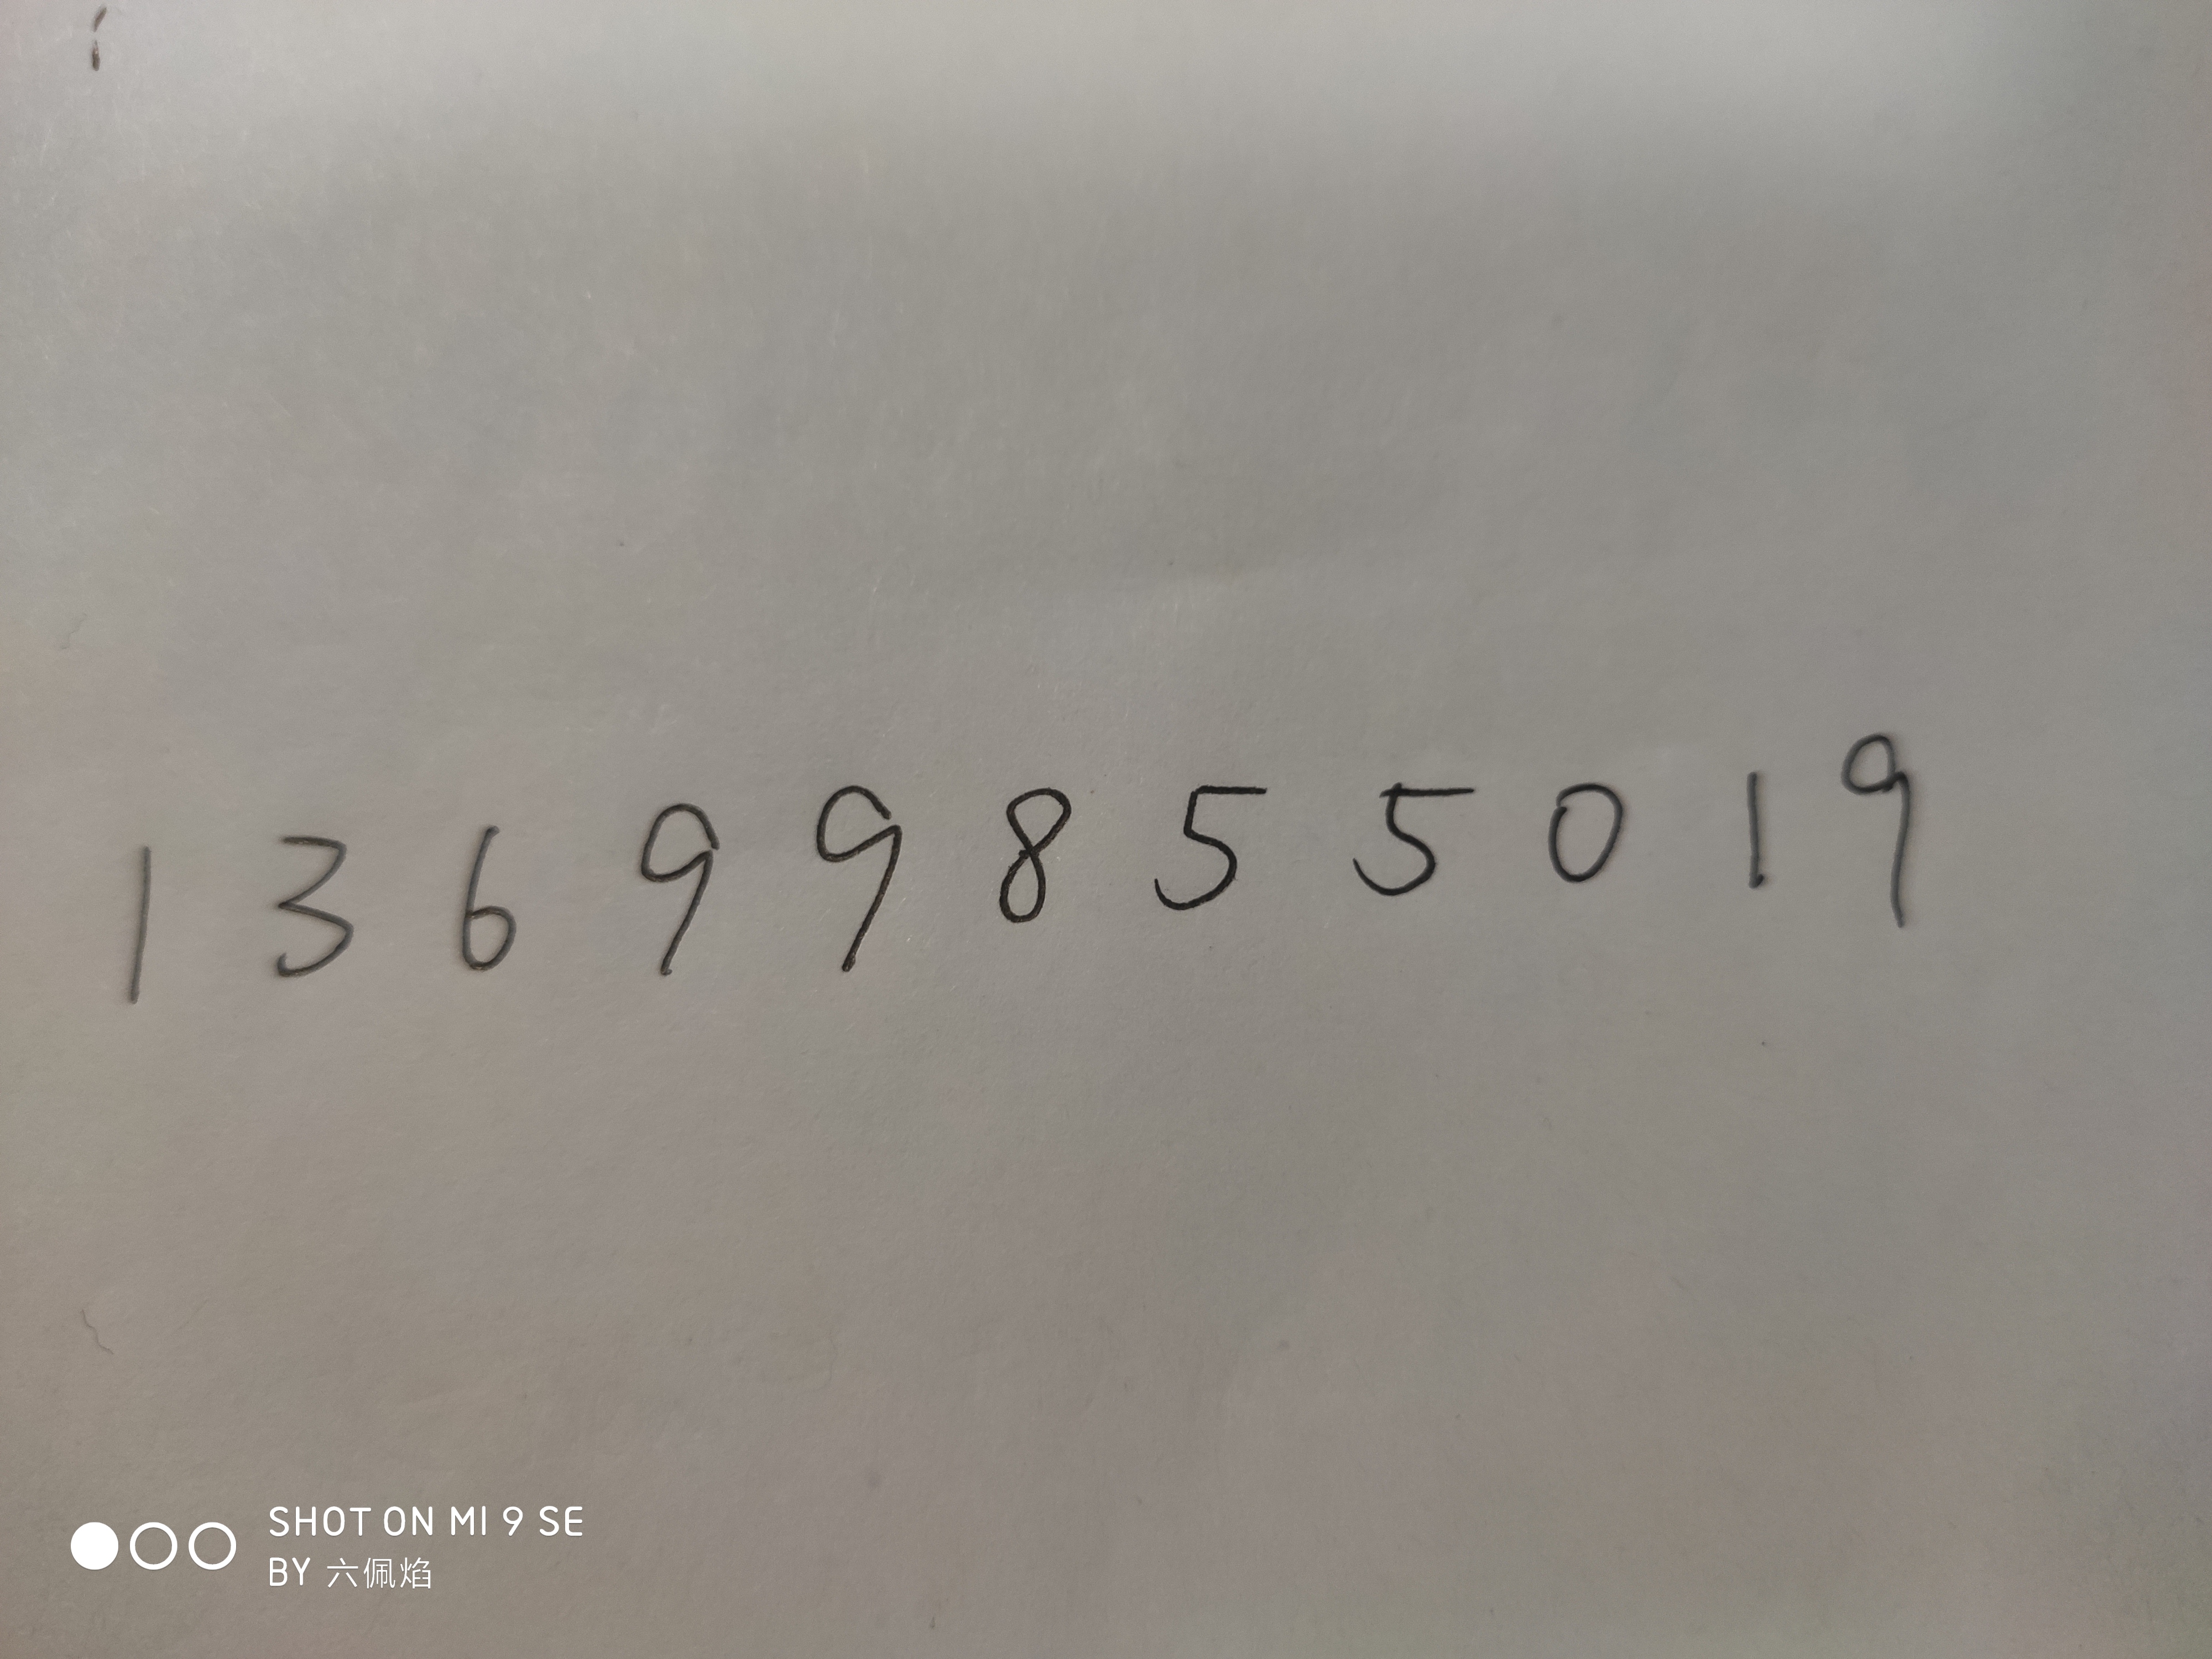 1 3 6 9 9 8 5 5 0 1 9
SHOT ON MI 9 SE
BY 六佩焰